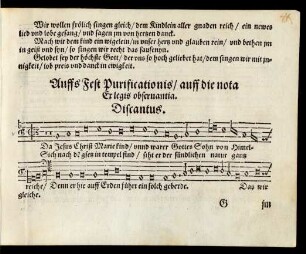 Wir wollen frölich singen gleich/ dem Kindlein aller gnaden reich/ ein newes
lied und lobe gesang/ und sagen jm von hertzen danck.
Mach wir dem kind ein wigelein/ in unser hertz und glauben rein/ und bethen jm
in geist und syn/ so singen wir recht das sausenyn.
Gelobet sey der höchste Gott/ der uns so hoch geliebet hat/ dem singen wir mit jn-
nigkeit/ lob preis und danck in ewigkeit.
Auffs Fest Purificationis/ auff die nota
Ex legis obseruantia.
Discantus.
Da Jesus Christ Marie kind/ unnd warer Gottes Sohn von Himel-
Sich nach dē gsetz in tempel fand/ sihr er der sündlichen natur gantz
reiche/ Denn er hie auff Erden füret ein solch geberde. Das wir
gleiche.
G jm